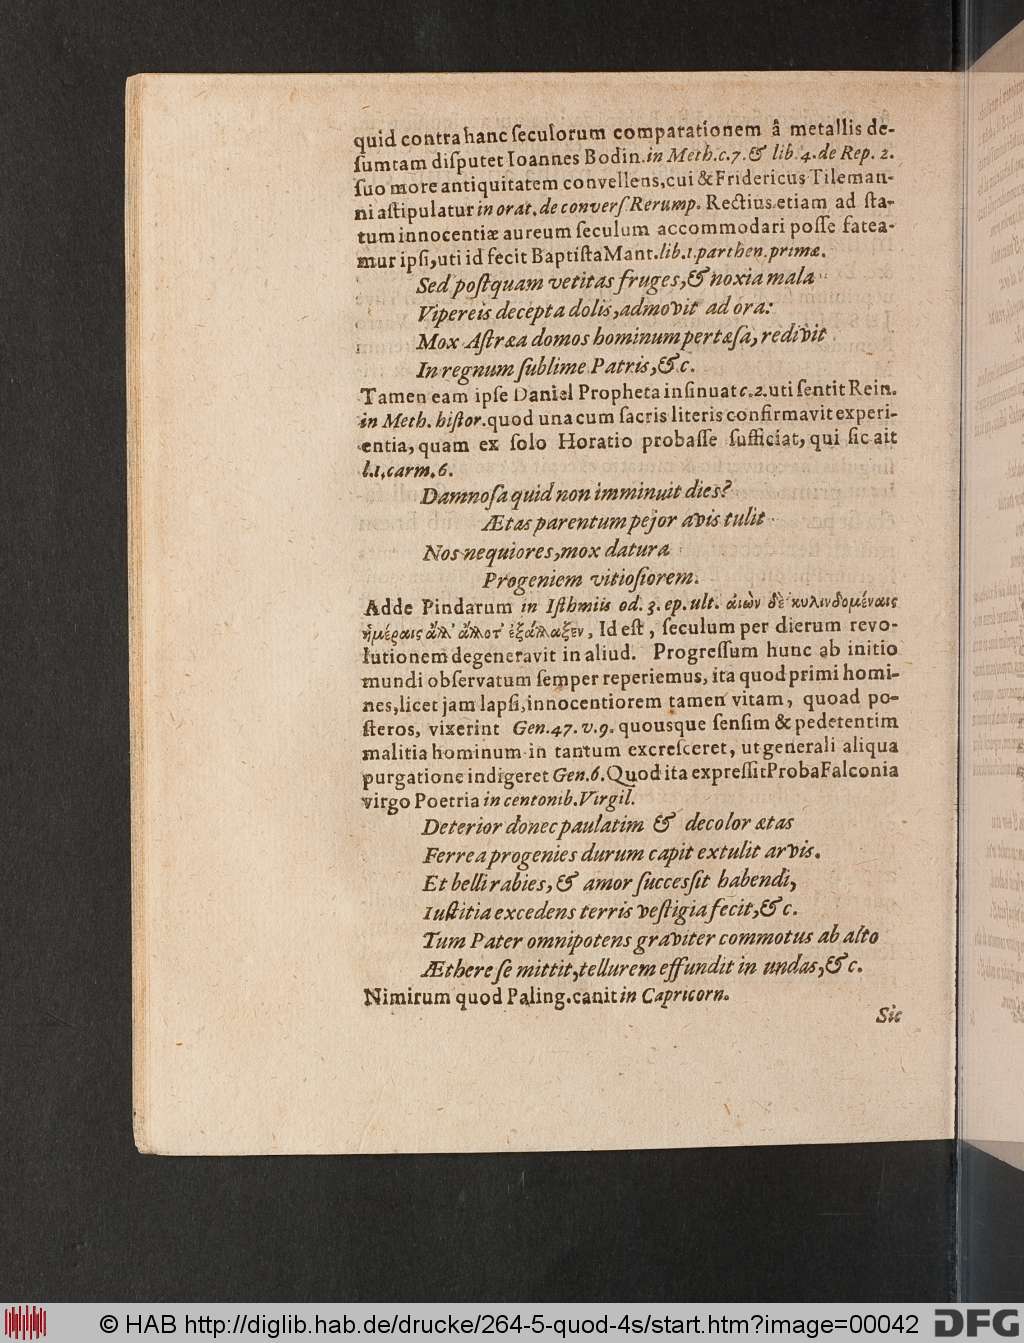 quid contra hanc ſeculorum comparationem â metallis de-
ſumtam diſputet Ioannes Bodin. in Meth. c. 7. & lib. 4. de Rep. 2.
ſuo more antiquitatem convellens, cui & Fridericus Tileman-
ni aſtipulatur in orat. de converſ Rerump. Rectius etiam ad ſta-
tum innocentiæ aureum ſeculum accommodari poſſe fatea-
mur ipſi, uti id fecit Baptiſta Mant. lib. 1. parthen. primæ.
Sed poſtquam vetitas fruges, & noxia mala
Vipereis decepta dolis, admovit ad ora:
Mox Aſtræa domos hominum pertæſa, redivit
In regnum ſublime Patris, &c.
Tamen eam ipſe Daniel Propheta inſinuat c. 2. uti ſentit Rein.
in Meth. hiſtor. quod una cum ſacris literis confirmavit experi-
entia, quam ex ſolo Horatio probaſſe ſufficiat, qui ſic ait
l. 1. carm. 6.
Damnoſa quid non imminuit dies?
Ætas parentum pejor avis tulit
Nos nequiores, mox datura
Progeniem vitioſiorem.
Adde Pindarum in Iſthmiis od. 3. ep. ult. ἀιὼν δὲ κυλινδομέναις
ἡμέραις ἄλλ' ἄλλοτ' ἐξάλλαξεν, Id eſt, ſeculum per dierum revo-
lutionem degeneravit in aliud. Progreſſum hunc ab initio
mundi obſervatum ſemper reperiemus, ita quod primi homi-
nes, licet jam lapſi, innocentiorem tamen vitam, quoad po-
ſteros, vixerint Gen. 47. v. 9. quousque ſenſim & pedetentim
malitia hominum in tantum excreſceret, ut generali aliqua
purgatione indigeret Gen. 6. Quod ita expreſſit Proba Falconia
virgo Poetria in centonib. Virgil.
Deterior donec paulatim & decolor ætas
Ferrea progenies durum capit extulit arvis.
Et belli rabies, & amor ſucceſſit habendi,
Iuſtitia excedens terris veſtigia fecit, &c.
Tum Pater omnipotens graviter commotus ab alto
Æthere ſe mittit, tellurem effundit in undas, &c.
Nimirum quod Paling. canit in Capricorn.
Sic
© HAB http://diglib.hab.de/drucke/264-5-quod-4s/start.htm?image=00042
DFG